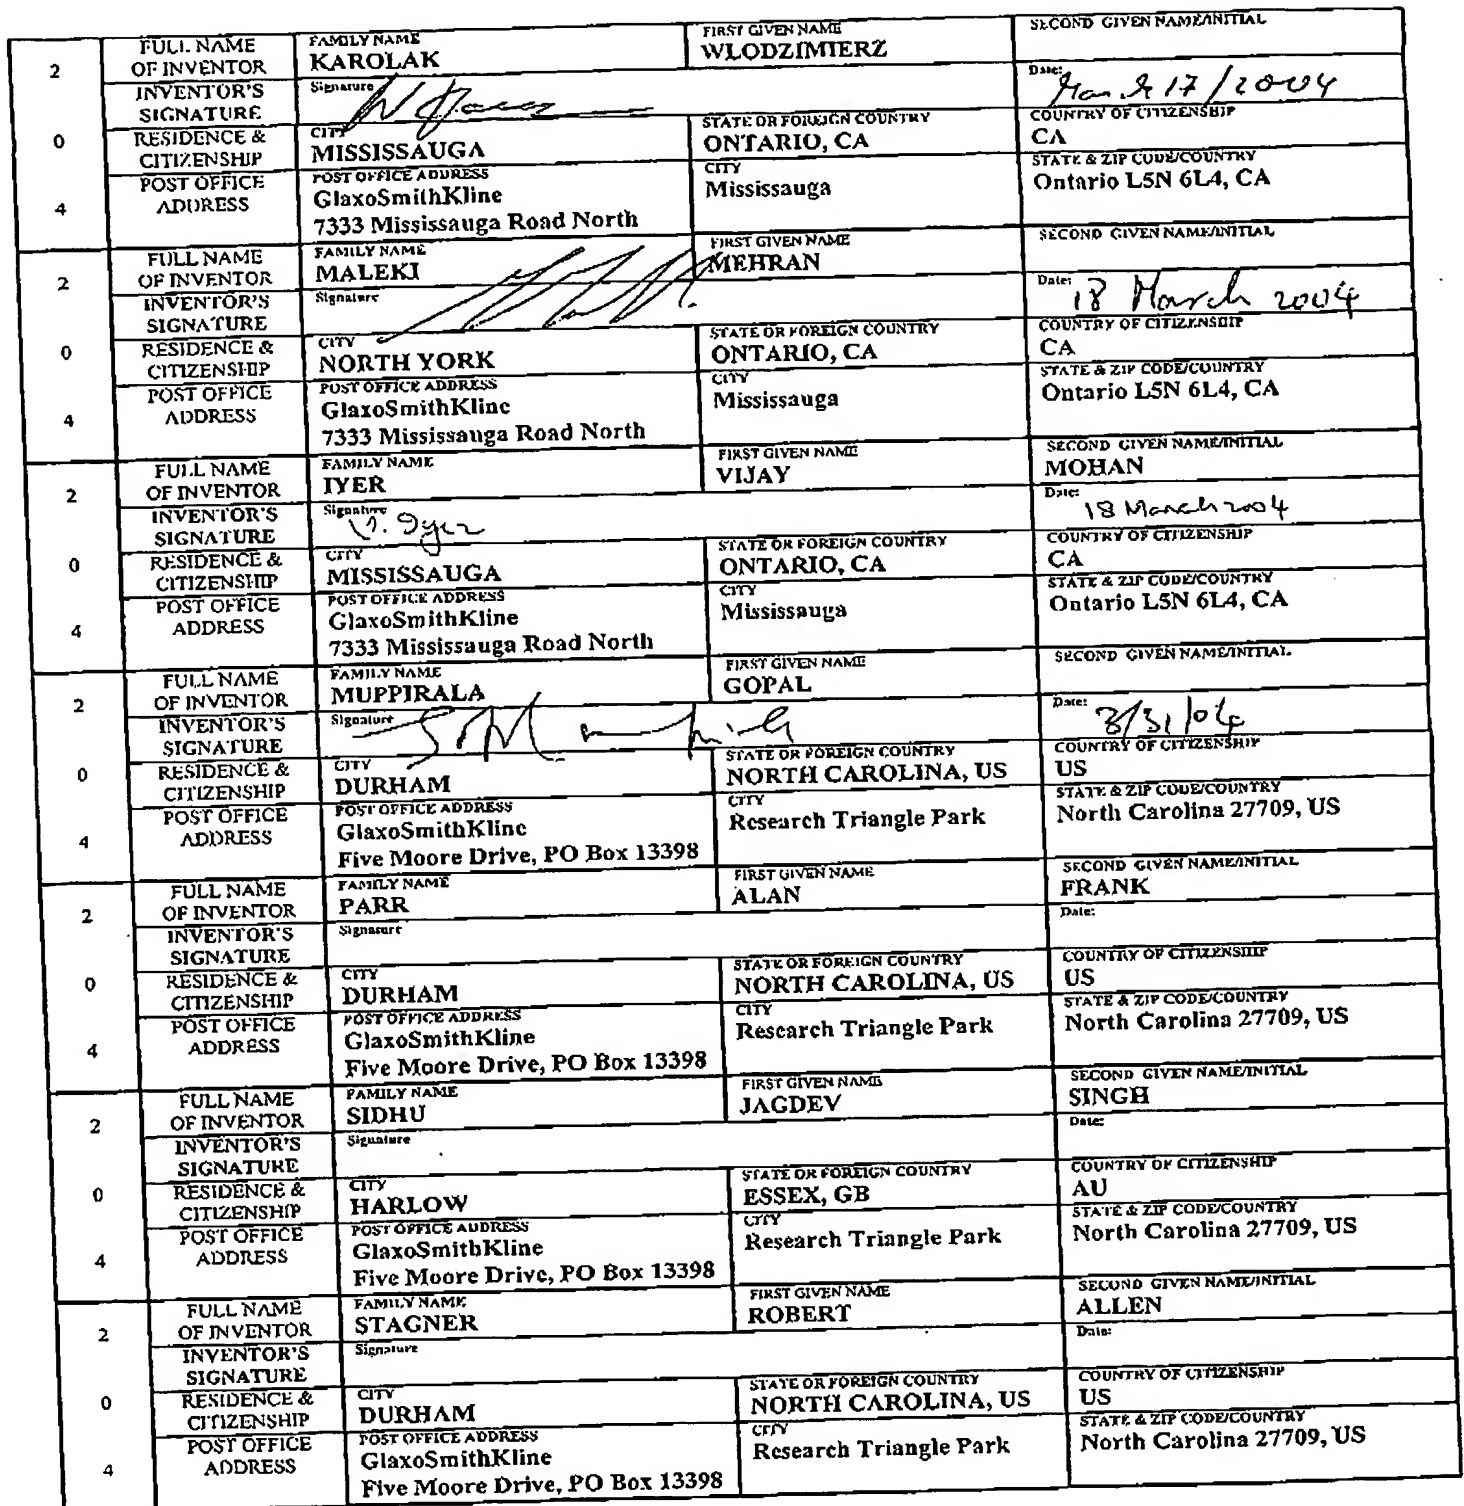 2 FULL NAME OF INVENTOR FAMILY NAME KAROLAK FIRST GIVEN NAME WLODZIMIERZ SECOND GIVEN NAME/INITIAL
INVENTOR'S SIGNATURE Signature Date: March 17/2004
0 RESIDENCE & CITIZENSHIP CITY MISSISSAUGA STATE OR FOREIGN COUNTRY ONTARIO, CA COUNTRY OF CITIZENSHIP CA
4 POST OFFICE ADDRESS POST OFFICE ADDRESS GlaxoSmithKline 7333 Mississauga Road North CITY Mississauga STATE & ZIP CODE/COUNTRY Ontario L5N 6L4, CA
2 FULL NAME OF INVENTOR FAMILY NAME MALEKI FIRST GIVEN NAME MEHRAN SECOND GIVEN NAME/INITIAL
INVENTOR'S SIGNATURE Signature Date: 18 March 2004
0 RESIDENCE & CITIZENSHIP CITY NORTH YORK STATE OR FOREIGN COUNTRY ONTARIO, CA COUNTRY OF CITIZENSHIP CA
4 POST OFFICE ADDRESS POST OFFICE ADDRESS GlaxoSmithKline 7333 Mississauga Road North CITY Mississauga STATE & ZIP CODE/COUNTRY Ontario L5N 6L4, CA
2 FULL NAME OF INVENTOR FAMILY NAME IYER FIRST GIVEN NAME VIJAY SECOND GIVEN NAME/INITIAL MOHAN
INVENTOR'S SIGNATURE Signature V. Iyer Date: 18 March 2004
0 RESIDENCE & CITIZENSHIP CITY MISSISSAUGA STATE OR FOREIGN COUNTRY ONTARIO, CA COUNTRY OF CITIZENSHIP CA
4 POST OFFICE ADDRESS POST OFFICE ADDRESS GlaxoSmithKline 7333 Mississauga Road North CITY Mississauga STATE & ZIP CODE/COUNTRY Ontario L5N 6L4, CA
2 FULL NAME OF INVENTOR FAMILY NAME MUPPIRALA FIRST GIVEN NAME GOPAL SECOND GIVEN NAME/INITIAL
INVENTOR'S SIGNATURE Signature Date: 3/31/04
0 RESIDENCE & CITIZENSHIP CITY DURHAM STATE OR FOREIGN COUNTRY NORTH CAROLINA, US COUNTRY OF CITIZENSHIP US
4 POST OFFICE ADDRESS POST OFFICE ADDRESS GlaxoSmithKline Five Moore Drive, PO Box 13398 CITY Research Triangle Park STATE & ZIP CODE/COUNTRY North Carolina 27709, US
2 FULL NAME OF INVENTOR FAMILY NAME PARR FIRST GIVEN NAME ALAN SECOND GIVEN NAME/INITIAL FRANK
INVENTOR'S SIGNATURE Signature Date:
0 RESIDENCE & CITIZENSHIP CITY DURHAM STATE OR FOREIGN COUNTRY NORTH CAROLINA, US COUNTRY OF CITIZENSHIP US
4 POST OFFICE ADDRESS POST OFFICE ADDRESS GlaxoSmithKline Five Moore Drive, PO Box 13398 CITY Research Triangle Park STATE & ZIP CODE/COUNTRY North Carolina 27709, US
2 FULL NAME OF INVENTOR FAMILY NAME SIDHU FIRST GIVEN NAME JAGDEV SECOND GIVEN NAME/INITIAL SINGH
INVENTOR'S SIGNATURE Signature Date:
0 RESIDENCE & CITIZENSHIP CITY HARLOW STATE OR FOREIGN COUNTRY ESSEX, GB COUNTRY OF CITIZENSHIP AU
4 POST OFFICE ADDRESS POST OFFICE ADDRESS GlaxoSmithKline Five Moore Drive, PO Box 13398 CITY Research Triangle Park STATE & ZIP CODE/COUNTRY North Carolina 27709, US
2 FULL NAME OF INVENTOR FAMILY NAME STAGNER FIRST GIVEN NAME ROBERT SECOND GIVEN NAME/INITIAL ALLEN
INVENTOR'S SIGNATURE Signature Date:
0 RESIDENCE & CITIZENSHIP CITY DURHAM STATE OR FOREIGN COUNTRY NORTH CAROLINA, US COUNTRY OF CITIZENSHIP US
4 POST OFFICE ADDRESS POST OFFICE ADDRESS GlaxoSmithKline Five Moore Drive, PO Box 13398 CITY Research Triangle Park STATE & ZIP CODE/COUNTRY North Carolina 27709, US